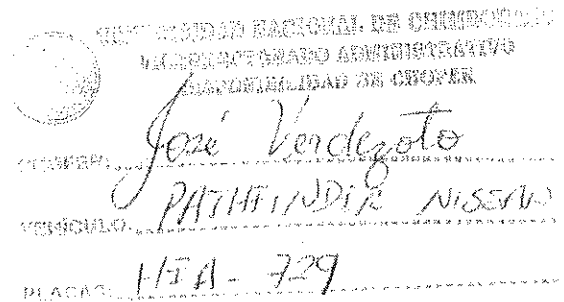 UNIVERSIDAD NACIONAL DE CHIMBORAZO
VICERRECTORADO ADMINISTRATIVO
RESPONSABILIDAD DE CHOFER
CHOFER: José Verdezoto
VEHÍCULO: PATHFINDER NISSAN
PLACAS: HIA - 729